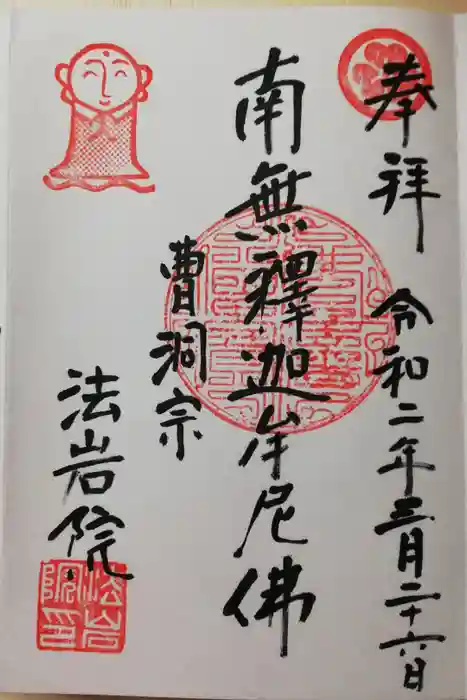 奉拝 令和二年三月二十六日
南無釋迦牟尼佛
曹洞宗
法岩院
法岩院印